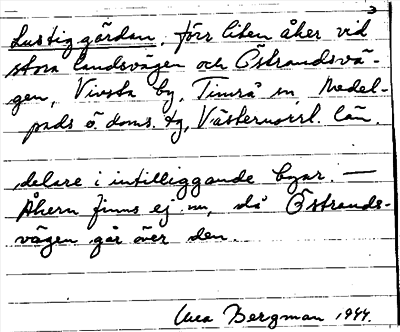 3
Lustiggärdan, förr liten åker vid
stora landsvägen och Östrandsvä-
gen, Vivsta by, Timrå sn, Medel-
pads ö. doms. tg, Västernorrl. län.
delare i intilliggande byar. —
Åkern finns ej nu, då Östrands-
vägen går över den.
Bergman 1944.